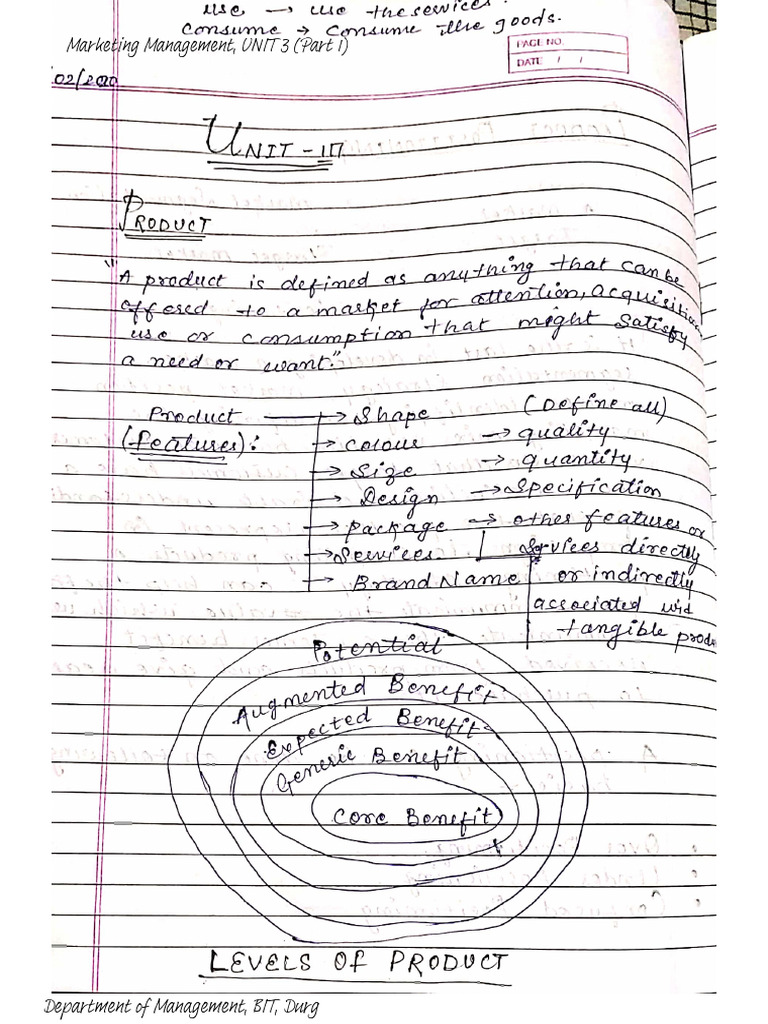 use → use the services.
consume → consume the goods.
Marketing Management, UNIT 3 (Part 1)
PAGE NO.
DATE / /
02/2020
UNIT - III
PRODUCT
"A product is defined as anything that can be
offered to a market for attention, acquisition
use or consumption that might satisfy
a need or want."
Product → Shape (Define all)
(features): → colour → quality
→ Size → quantity
→ Design → Specification
→ package → other features or
→ Services services directly
→ Brand Name or indirectly
associated wid
tangible produ
Potential
Augmented Benefit
Expected Benefit
Generic Benefit
Core Benefit
LEVELS OF PRODUCT
Department of Management, BIT, Durg